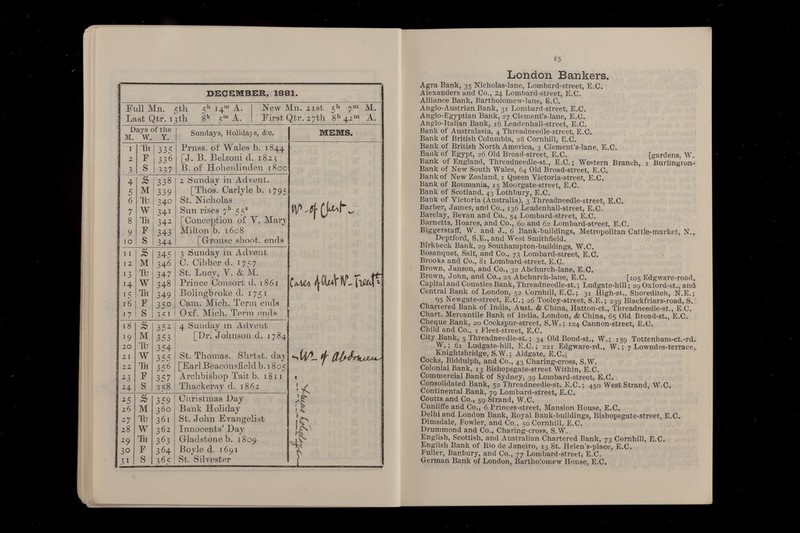 DECEMBER, 1881.
Full Mn. 5th 5h 14m A. New Mn. 21st 5h 7m M.
Last Qtr. 13th 8h 5m A. First Qtr. 27th 8h 42m A.
Days of the Sundays, Holidays, &c. MEMS.
M. W. Y.
1 Th 335 Prnss. of Wales b. 1844
2 F 336 [J. B. Belzoni d. 1823
3 S 337 B. of Hohenlinden 1800
4 S 338 2 Sunday in Advent.
5 M 339 [Thos. Carlyle b. 1795
6 Tu 340 St. Nicholas
7 W 341 Sun rises 7h 55s
8 Th 342 [Conception of V. Mary
9 F 343 Milton b. 1608
10 S 344 [Grouse shoot. ends
11 S 345 3 Sunday in Advent
12 M 346 C. Cibber d. 1757
13 Tu 347 St. Lucy, V. & M.
14 W 348 Prince Consort d. 1861
15 Th 349 Bolingbroke d. 1751
16 F 350 Cam. Mich. Term ends
17 S 351 Oxf. Mich. Term ends
18 S 352 4 Sunday in Advent
19 M 353 [Dr. Johnson d. 1784
20 Tu 354
21 W 355 St. Thomas. Shrtst. day
22 Th 356 [Earl Beaconsfield b. 1805
23 F 357 Archbishop Tait b. 1811
24 S 358 Thackeray d. 1862
25 S 359 Christmas Day
26 M 360 Bank Holiday
27 Tu 361 St. John Evangelist
28 W 362 Innocents' Day
29 Th 363 Gladstone b. 1809
30 F 364 Boyle d. 1691
31 S 365 St. Silvester
of Chest
Cases of Chest
of Abdomen
Xmas Holidays
15
London Bankers.
Agra Bank, 35 Nicholas-lane, Lombard-street, E.C.
Alexanders and Co., 24 Lombard-street, E.C.
Alliance Bank, Bartholomew-lane, E.C.
Anglo-Austrian Bank, 31 Lombard-street, E.C.
Anglo-Egyptian Bank, 27 Clement's-lane, E.C.
Anglo-Italian Bank, 16 Leadenhall-street, E.C.
Bank of Australasia, 4 Threadneedle-street, E.C.
Bank of British Columbia, 28 Cornhill, E.C.
Bank of British North America, 3 Clement's-lane, E.C.
Bank of Egypt, 26 Old Broad-street, E.C. [gardens, W.
Bank of England, Threadneedle-st., E.C.; Western Branch, 1 Burlington-
Bank of New South Wales, 64 Old Broad-street, E.C.
Bank of New Zealand, 1 Queen Victoria-street, E.C.
Bank of Roumania, 15 Moorgate-street, E.C.
Bank of Scotland, 43 Lothbury, E.C.
Bank of Victoria (Australia), 3 Threadneedle-street, E.C.
Barber, James, and Co., 136 Leadenhall-street, E.C.
Barclay, Bevan and Co., 54 Lombard-street, E.C.
Barnetts, Hoares, and Co., 60 and 62 Lombard-street, E.C.
Biggerstaff, W. and J., 6 Bank-buildings, Metropolitan Cattle-market, N.,
Deptford, S.E., and West Smithfield.
Birkbeck Bank, 29 Southampton-buildings, W.C.
Bosanquet, Salt, and Co., 73 Lombard-street, E.C.
Brooks and Co., 81 Lombard-street, E.C.
Brown, Janson, and Co., 32 Abchurch-lane, E.C.
Brown, John, and Co., 25 Abchurch-lane, E.C. [105 Edgware-road.
Capital and Counties Bank, Threadneedle-st.; Ludgate-hill; 29 Oxford-st., and
Central Bank of London, 52 Cornhill, E.C.; 31 High-st., Shoreditch, N.E.;
95 Newgate-street, E.C.; 26 Tooley-street, S.E.; 239 Blackfriars-road, S.
Chartered Bank of India, Aust. & China, Hatton-ct., Threadneedle-st., E.C.
Chart. Mercantile Bank of India, London, & China, 65 Old Broad-st., E.C.
Cheque Bank, 20 Cockspur-street, S.W.; 124 Cannon-street, E.C.
Child and Co., 1 Fleet-street, E.C.
City Bank, 5 Threadneedle-st.; 34 Old Bond-st., W.; 159 Tottenham-ct.-rd.
W.; 61 Ludgate-hill, E.C.; 221 Edgware-rd., W.; 7 Lowndes-terrace,
Knightsbridge, S.W.; Aldgate, E.C.
Cocks, Biddulph, and Co., 43 Charing-cross, S.W.
Colonial Bank, 13 Bishopsgate-street Within, E.C.
Commercial Bank of Sydney, 39 Lombard-street, E.C.
Consolidated Bank, 52 Threadneedle-st. E.C.; 450 West Strand, W.C.
Continental Bank, 79 Lombard-street, E.C.
Coutts and Co., 59 Strand, W.C.
Cunliffe and Co., 6 Princes-street, Mansion House, E.C.
Delhi and London Bank, Royal Bank-buildings, Bishopsgate-street, E.C.
Dimsdale, Fowler, and Co., 50 Cornhill, E.C.
Drummond and Co., Charing-cross, S.W.
English, Scottish, and Australian Chartered Bank, 73 Cornhill, E.C.
English Bank of Rio de Janeiro, 13 St. Helen's-place, E.C.
Fuller, Banbury, and Co., 77 Lombard-street, E.C.
German Bank of London, Bartholomew House, E.C.